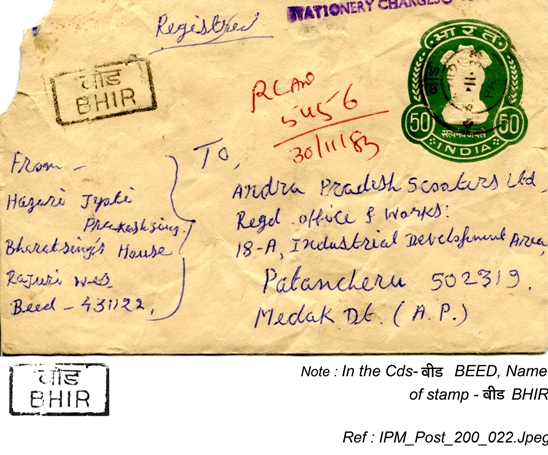 STATIONERY CHARGES
Registred
बीड
BHIR
भारत
50
50
सत्यमेव जयते
INDIA
बीड
RLAD
5456
30/11/83
From -
Hazari Jyoti
Prakashsing.
Bharatsing's House
Rajuri Wes
Beed - 431122,
To,
Andra Pradesh Scooters Ltd.
Regd. office & Works:
18-A, Industrial Development Area,
Patancheru 502319.
Medak Dt. (A.P.)
बीड
BHIR
Note : In the Cds- बीड BEED, Name
of stamp - बीड BHIR
Ref : IPM_Post_200_022.Jpeg